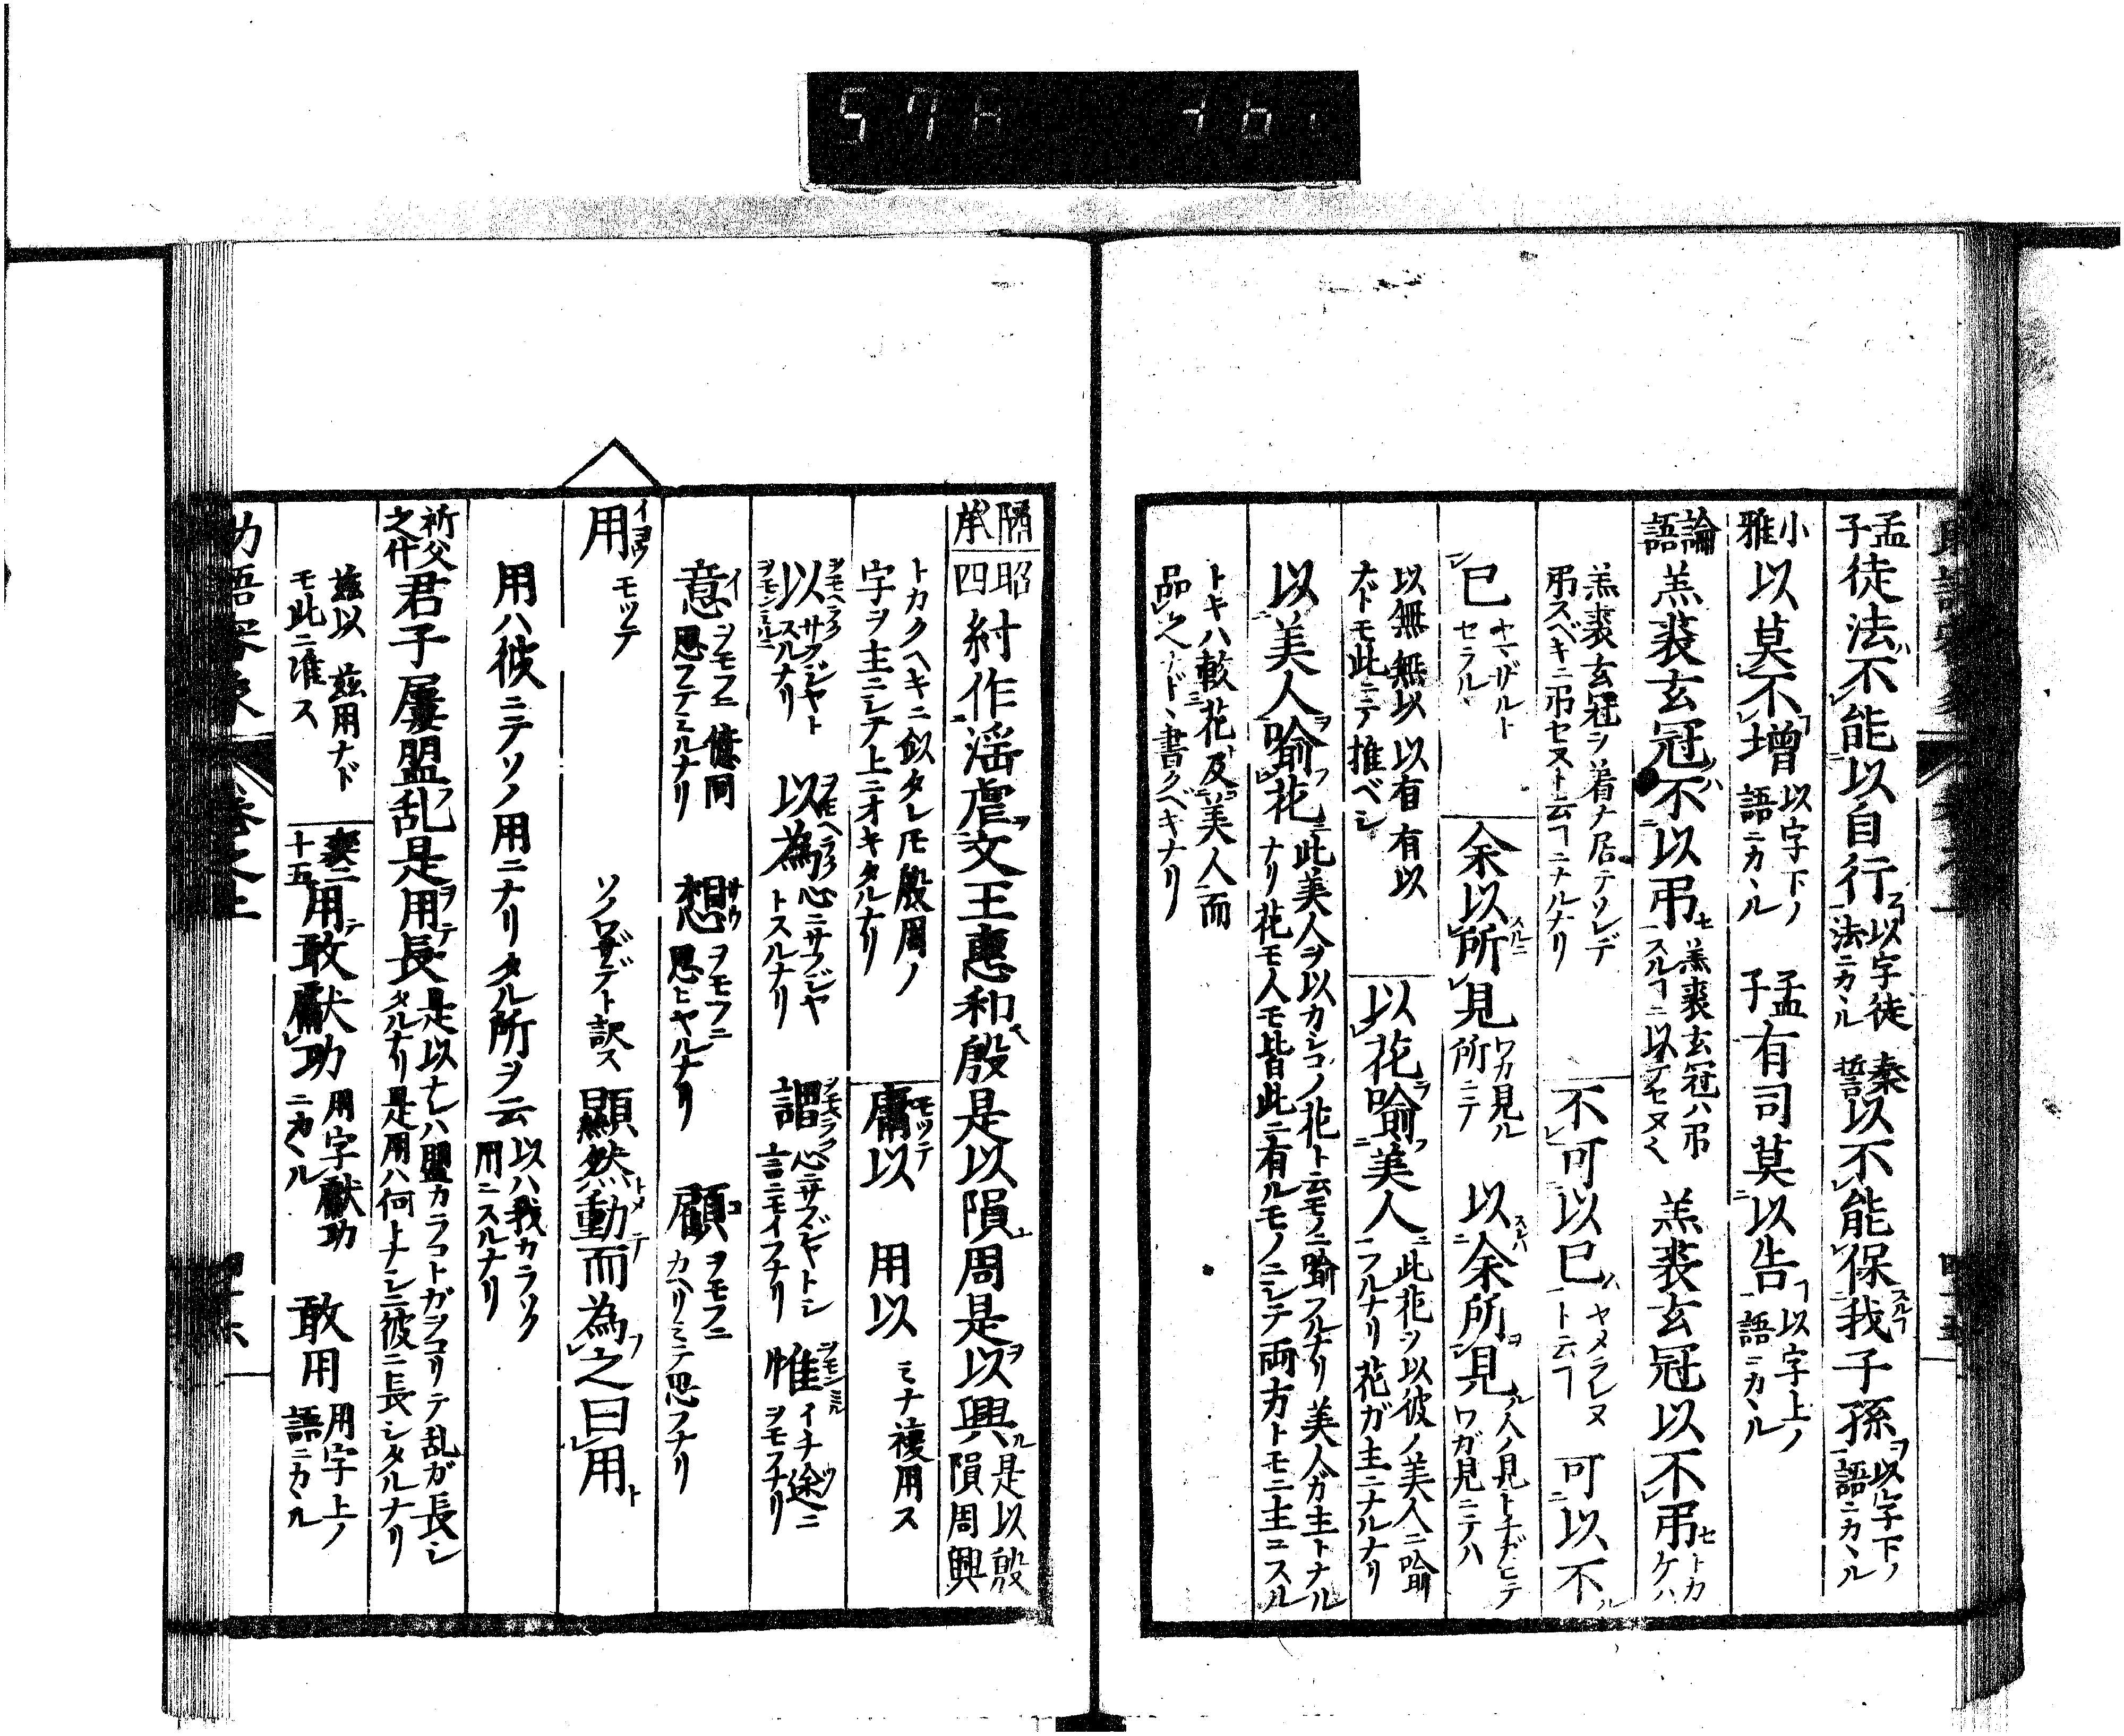 孟子 徒法不能以自行 以字徒法ニカヽル 秦誓 以不能保我子孫 以字下ノ語ニカヽル
小雅 以莫不増 以字下ノ語ニカヽル 孟子 有司莫以告 以字上ノ語ニカヽル
論語 羔裘玄冠不以弔 羔裘玄冠ハ弔スルヿニ以テセヌ 羔裘玄冠以不弔 トカケハ
羔裘玄冠ヲ着ナ居テソレデ弔スベキニ弔セヌト云ヿニナルナリ 不可以已 ヤメラレヌト云ヿ 可以不
已 ヤマザルトセラルヽ 余以所見 ワカ見ル所ニテ 以余所見 人ノ見トチガヒテワガ見ニテハ
以無 無以 以有 有以 ナドモ此ニテ推ベシ 以花喩美人 此花ヲ以彼ノ美人ニ喩フルナリ花ガ主ニナルナリ
以美人喩花 此美人ヲ以カシコノ花ト云モノニ喩フルナリ美人ガ主トナルナリ花モ人モ皆此ニ有ルモノニシテ両方トモニ主ニスル
トキハ較花及美人而品之ナドヽ書クベキナリ
昭四 紂作淫虐文王惠和殷是以隕周是以興 是以殷隕周興
トカクヘキニ似タレ𪜈殷周ノ字ヲ主ニシテ上ニオキタルナリ 庸以 用以 ミナ複用ス
以 サフシヤトスルナリ 以為 心ニサフジヤトスルナリ 謂 心ニサフジヤトシ言ニモイフナリ 惟 イチ途ニヲモフナリ
意 ヲモフニ 億同 思フテミルナリ 想 ヲモフニ 思ヒヤルナリ 顧 ヲモフニ カヘリミテ思フナリ
用 モツテ ソノワザデト訳ス 顯然動而為之曰用
用ハ彼ニテソノ用ニナリタル所ヲ云 以ハ我カラソク用ニスルナリ
祈父之什 君子屢盟乱是用長 是以ナレハ盟カラコトガヲコリテ乱ガ長シタルナリ是用ハ何トナシニ彼ニ長シタルナリ
茲以 茲用ナドモ此ニ准ス 襄二十五 用敢獻功 用字獻功ニカヽル 敢用 用字上ノ語ニカヽル